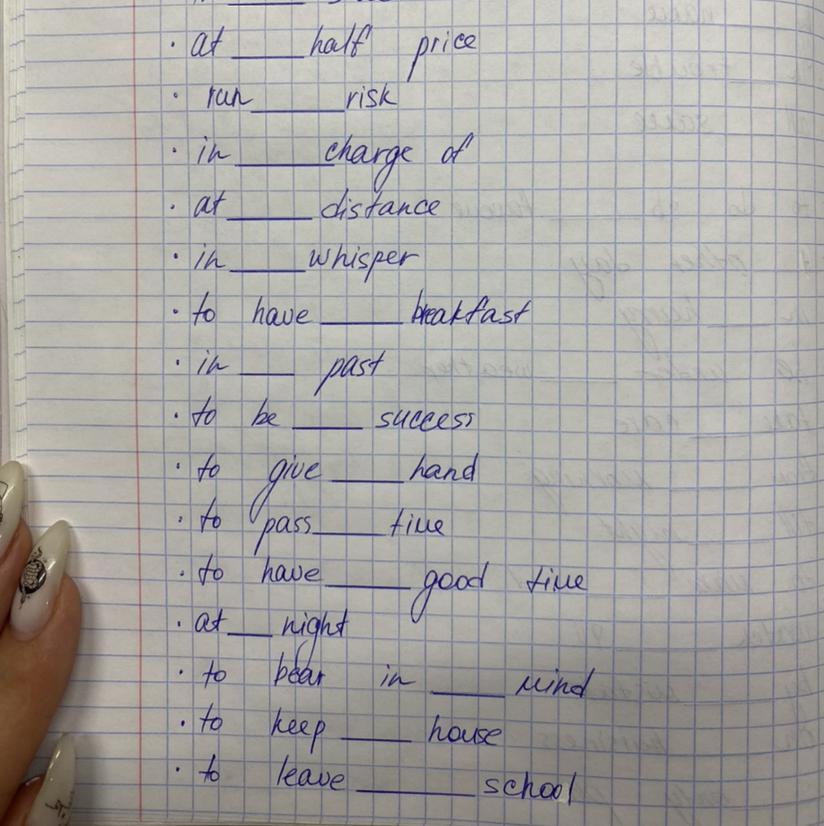 · at ____ half price
· run ____ risk
· in ____ charge of
· at ____ distance
· in ____ whisper
· to have ____ breakfast
· in ____ past
· to be ____ success
· to give ____ hand
· to pass ____ time
· to have ____ good time
· at ____ night
· to bear in ____ mind
· to keep ____ house
· to leave ____ school